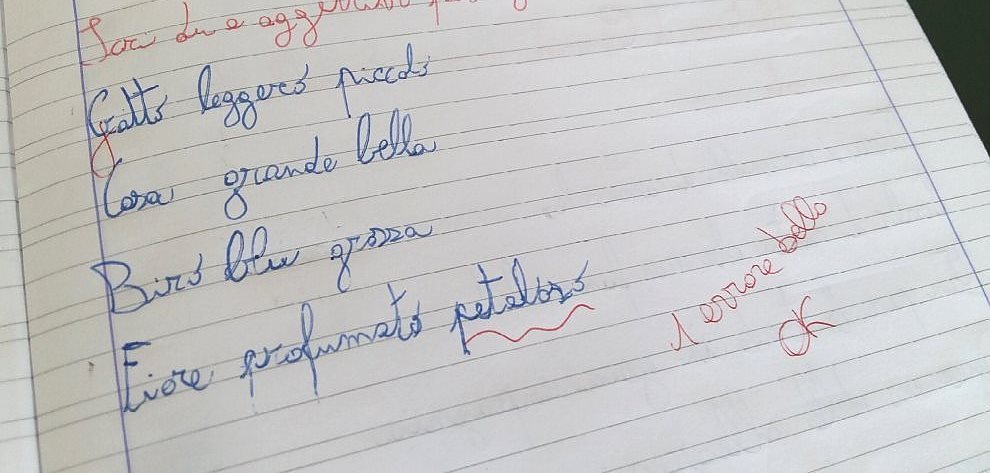 Scrivi due aggettivi per ogni
Gatto leggero piccolo
Cosa grande bella
Biro blu grossa
Fiore profumato petaloso
1 errore bello